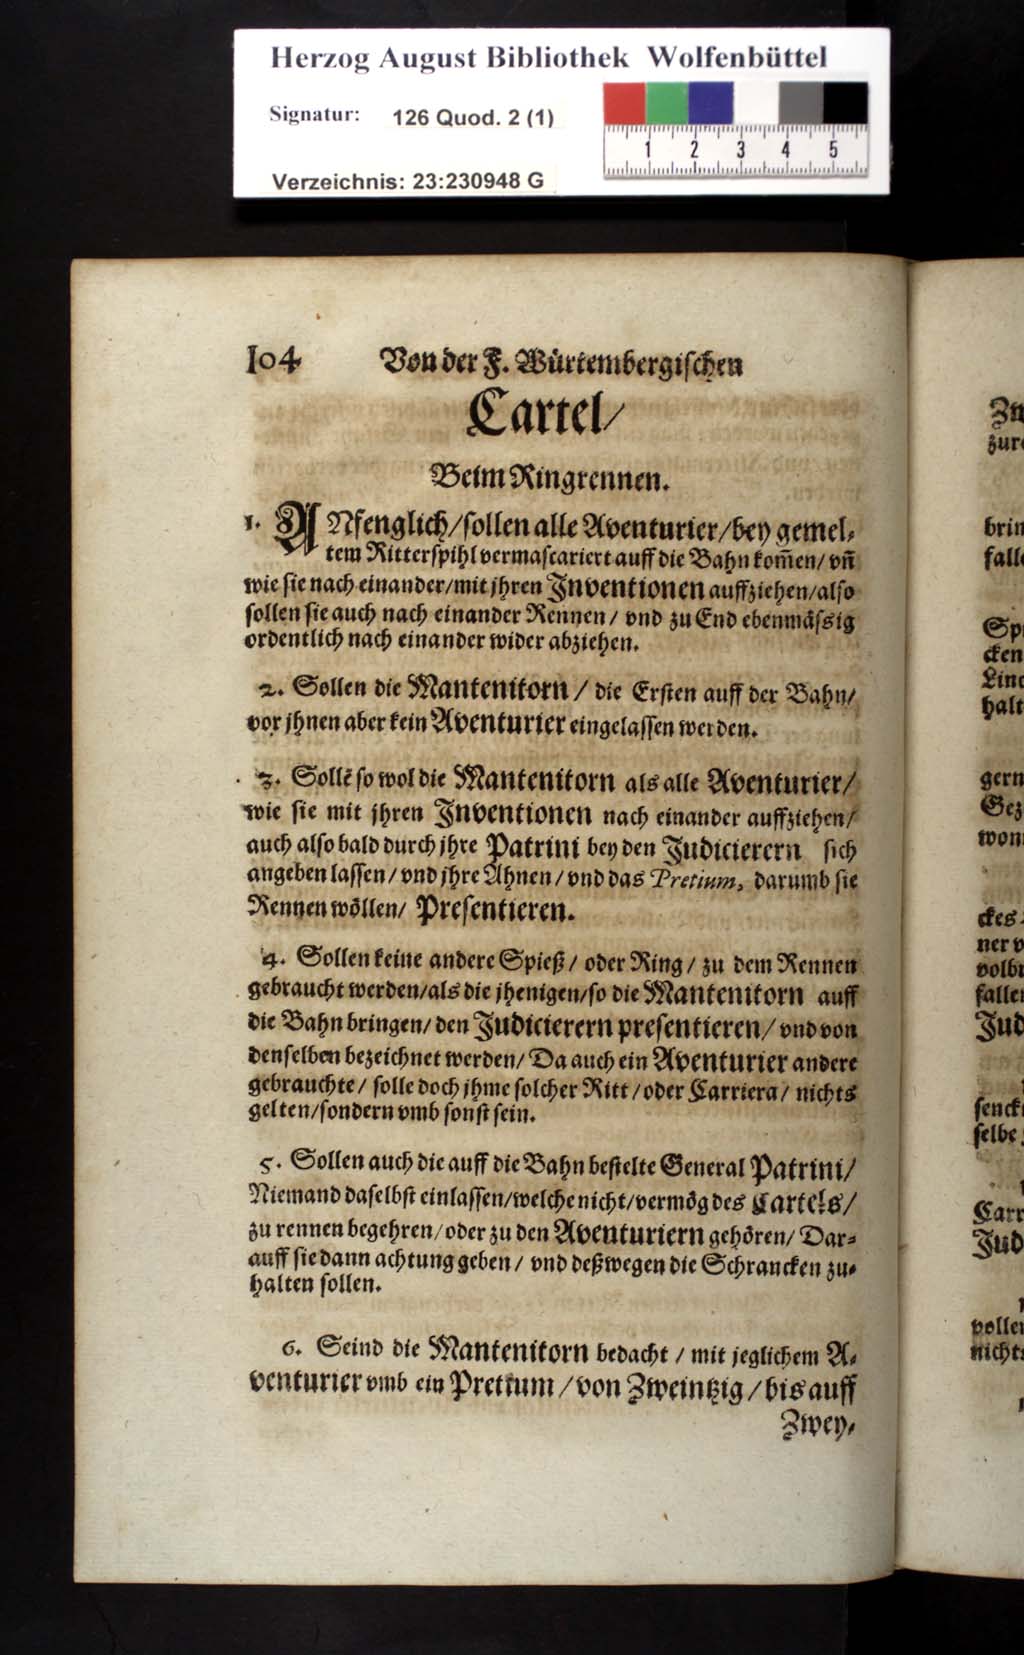 Herzog August Bibliothek Wolfenbüttel
Signatur: 126 Quod. 2 (1)
1 2 3 4 5
Verzeichnis: 23:230948 G
104 Von der F. Würtembergischen
Cartel/
Beim Ringrennen.
1. ANfenglich/sollen alle Aventurier/bey gemel-
tem Ritterspihl vermascariert auff die Bahn kom̄en/ vn̄
wie sie nach einander/mit jhren Inventionen auffziehen/also
sollen sie auch nach einander Rennen/ vnd zu End ebenmässig
ordentlich nach einander wider abziehen.
2. Sollen die Mantenitorn/ die Ersten auff der Bahn/
vor jhnen aber kein Aventurier eingelassen werden.
3. Sollē so wol die Mantenitorn als alle Aventurier/
wie sie mit jhren Inventionen nach einander auffziehen/
auch also bald durch jhre Patrini bey den Judicierern sich
angeben lassen/ vnd jhre Ahnen/ vnd das Pretium, darumb sie
Rennen wöllen/ Presentieren.
4. Sollen keine andere Spieß/ oder Ring/ zu dem Rennen
gebraucht werden/als die jhenigen/so die Mantenitorn auff
die Bahn bringen/ den Judicierern presentieren/ vnd von
denselben bezeichnet werden/ Da auch ein Aventurier andere
gebrauchte/ solle doch jhme solcher Ritt/ oder Carriera/ nichts
gelten/sondern vmb sonst sein.
5. Sollen auch die auff die Bahn bestelte General Patrini/
Niemand daselbst einlassen/welche nicht/vermög des Cartels/
zu rennen begehren/ oder zu den Aventuriern gehören/ Dar-
auff sie dann achtung geben/ vnd deßwegen die Schrancken zu-
halten sollen.
6. Seind die Mantenitorn bedacht/ mit jeglichem A-
venturier vmb ein Pretium/von Zweintzig/bis auff
Zwey-
brin
falle
cken
halt
gern
wonn
ner v
fallen
Jud
selbe
Carr
Jud
nichts